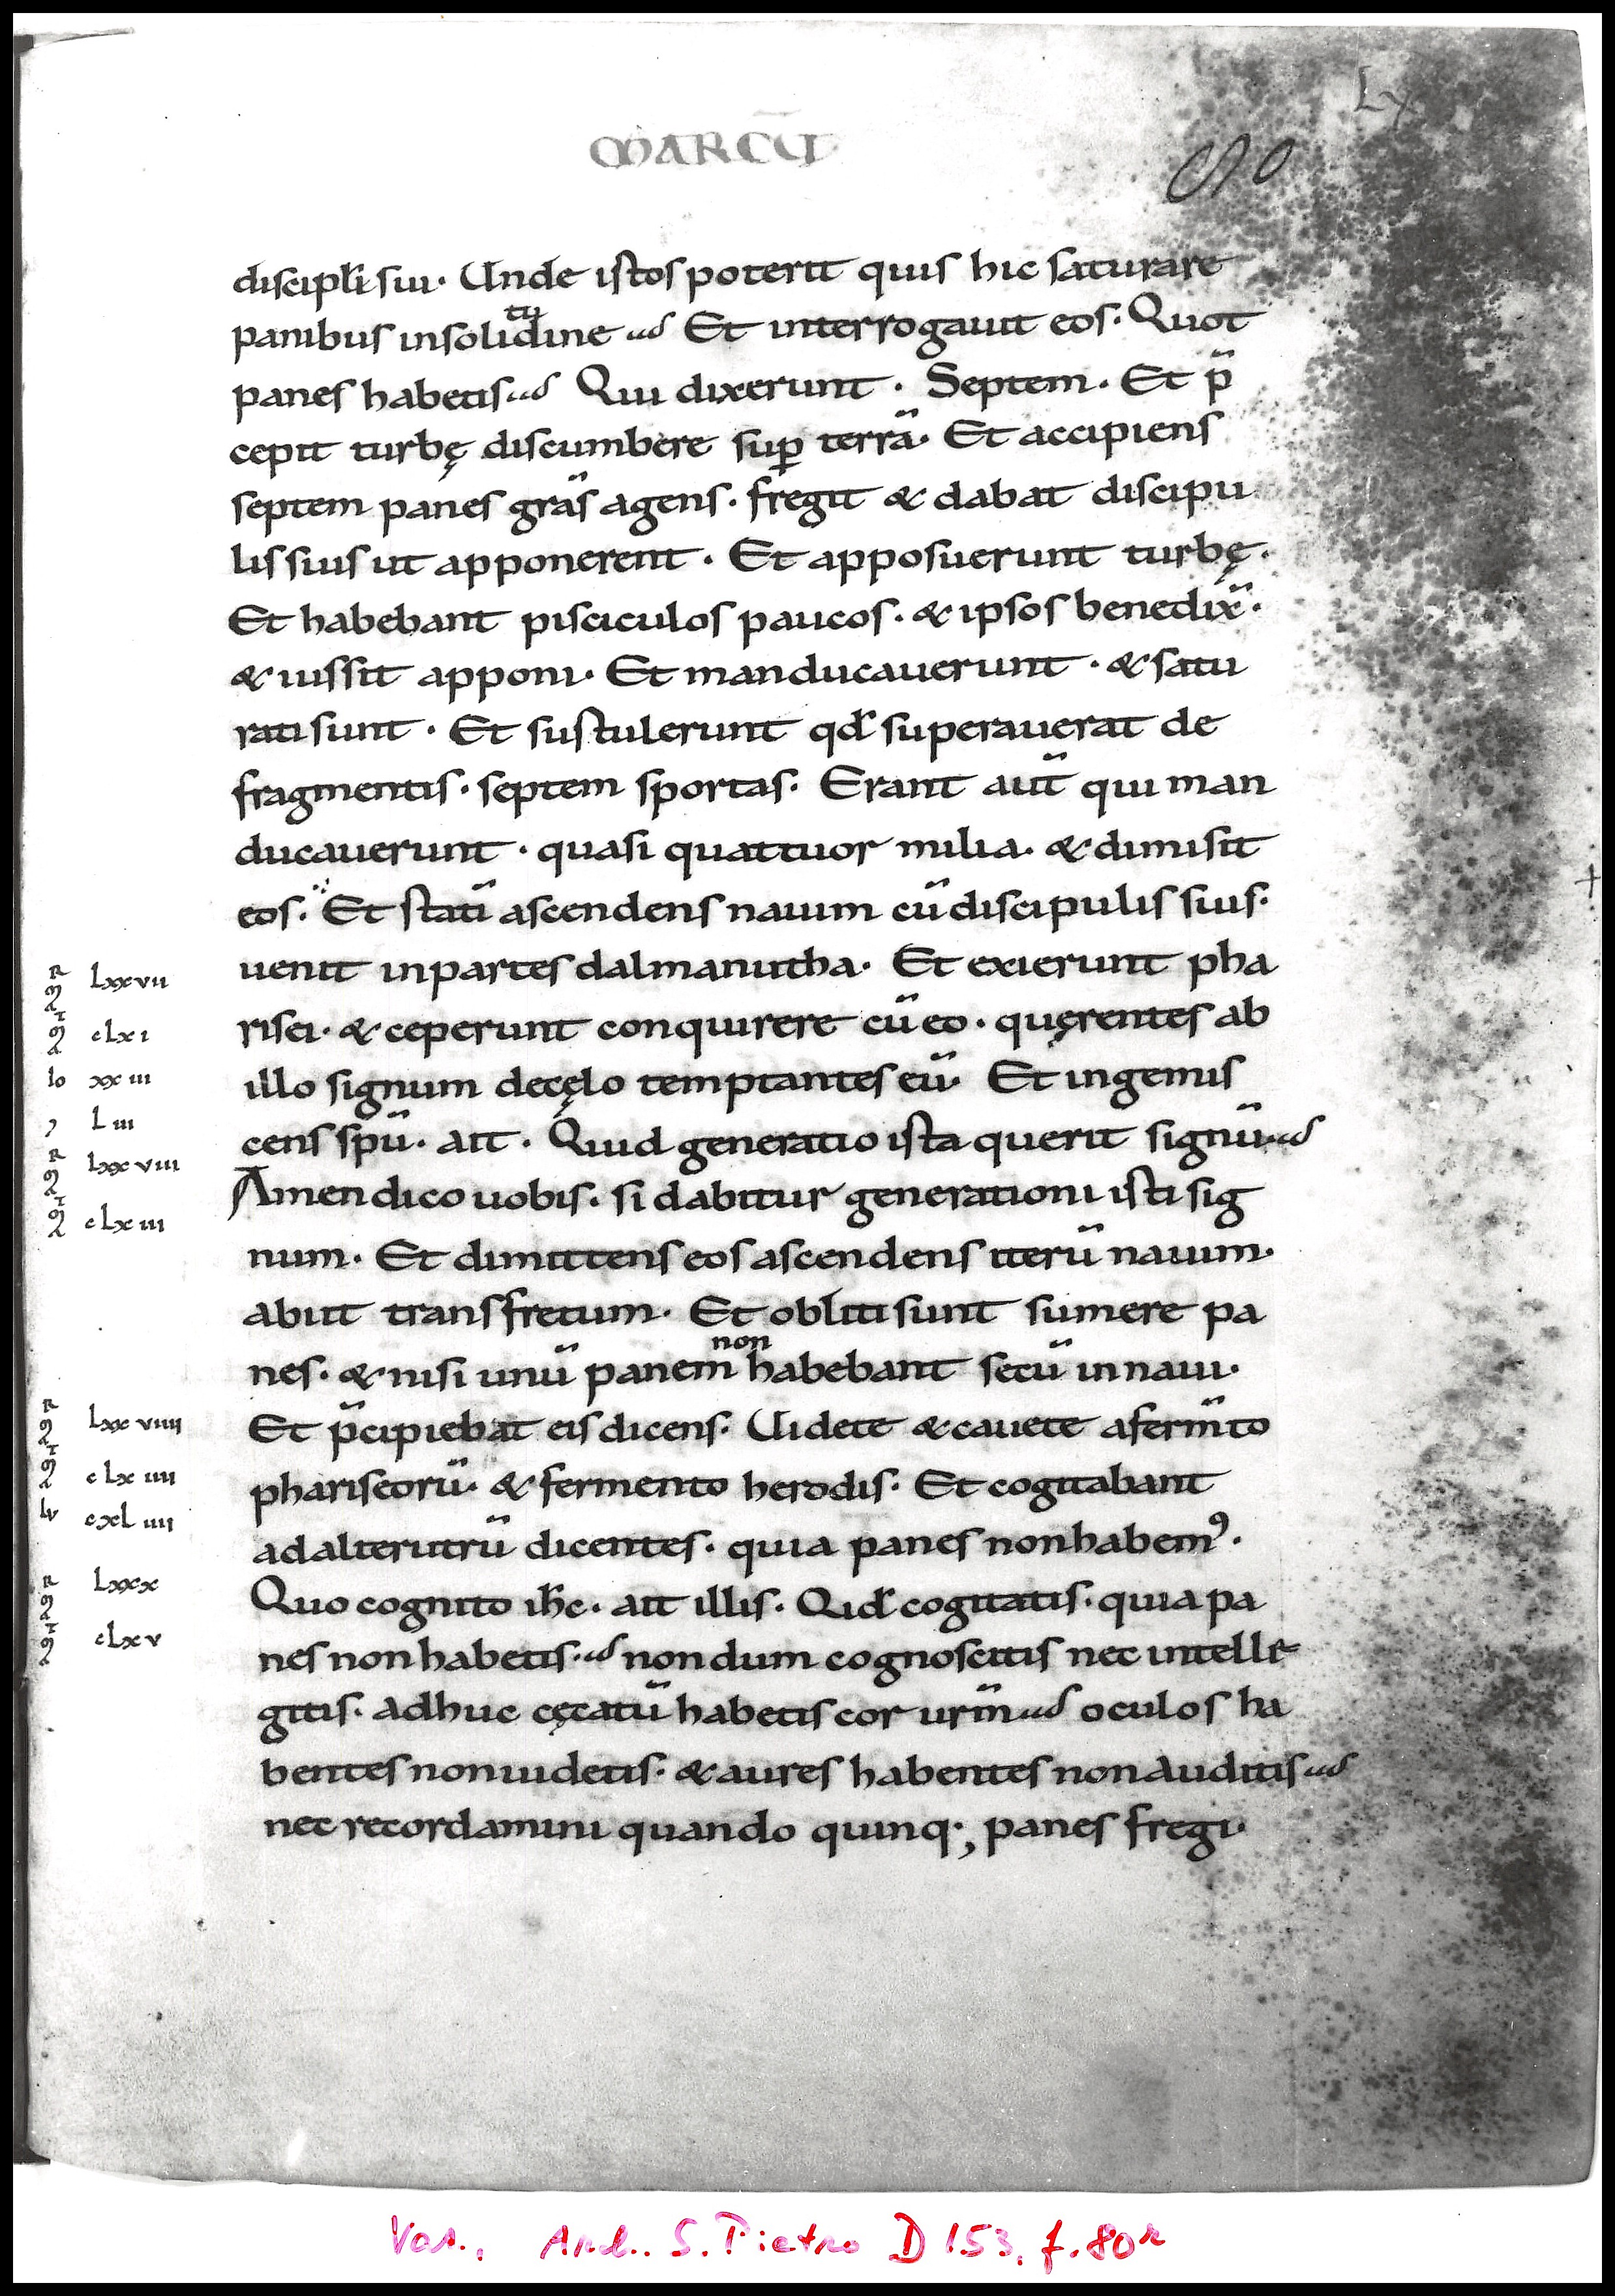 MARCŪ
Lx
80
discipl̄i sui· Unde istos poterit quis hic saturare
tu
panibus insolidine Et interrogauit eos· Quot
panes habetis Qui dixerunt · Septem · Et p̄
cepit turbę discumbere suꝑ terrā· Et accipiens
septem panes grās agens · fregit & dabat discipu
lis suis ut apponerent · Et apposuerunt turbę·
Et habebant pisciculos paucos · & ipsos benedix̄·
& iussit apponi· Et manducauerunt · & satu
rati sunt · Et sustulerunt qd̄ superauerat de
fragmentis · septem sportas· Erant aut̄ qui man
ducauerunt · quasi quattuor milia· & dimisit
eos· Et statī ascendens nauim cū discipulis suis·
uenit inpartes dalmanutha· Et exierunt pha
risei· & ceperunt conquirere cū eo · quęrentes ab
illo signum decęlo temptantes eū· Et ingemis
cens spū· ait · Quid generatio ista querit signū
Amen dico uobis· si dabitur generationi isti sig
num· Et dimittens eos ascendens iterū nauim·
abiit trans fretum· Et obliti sunt sumere pa
non
nes· & nisi unū panem habebant secū innaui·
Et p̄cipiebat eis dicens· Uidete & cauete aferm̄to
phariseorū· & fermento herodis· Et cogitabant
adalterutrū dicentes· quia panes nonhabemꝰ·
Quo cognito ih̄c· ait illis· Qid̄ cogitatis· quia pa
nes non habetis nondum cognoscitis nec intelle
gitis· adhuc cęcatū habetis cor ur̄m oculos ha
bentes nonuidetis· & aures habentes non auditis
nec recordamini quando quinq·, panes fregi·
mR Lxxvii
mT cLxi
Io xxiii
L Liii
mR Lxxviii
mT cLxiii
mR Lxxviiii
mT cLxiiii
Lv cxLiiii
mR Lxxx
mT cLxv
Vat., Arch. S. Pietro D 153, f. 80r